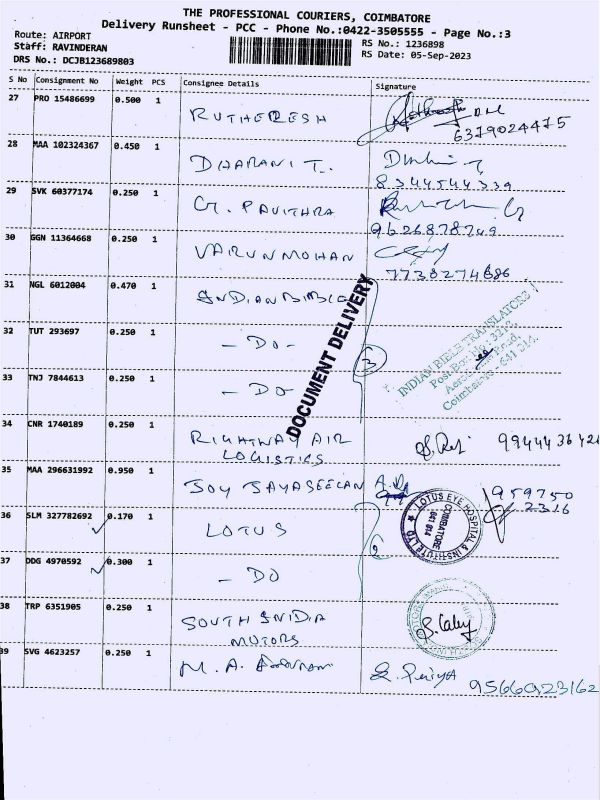 THE PROFESSIONAL COURIERS, COIMBATORE
Delivery Runsheet - PCC - Phone No.:0422-3505555 - Page No.:3
Route: AIRPORT
Staff: RAVINDERAN
DRS No.: DCJB123689803
RS No.: 1236898
RS Date: 05-Sep-2023
S No Consignment No Weight PCS Consignee Details Signature
27 PRO 15486699 0.500 1 RUTHERESH
6379024475
28 MAA 102324367 0.450 1 DHARANI T.
8344544339
29 SVK 60377174 0.250 1 G. PAVITHRA
9626878749
30 GGN 11364668 0.250 1 VARUN MOHAN
7738274686
31 NGL 6012004 0.470 1 INDIAN BIBLE
32 TUT 293697 0.250 1 - DO -
33 TNJ 7844613 0.250 1 - DO
3
DOCUMENT DELIVERY
INDIAN BIBLE TRANSLATORS
Post Box No: 3212
Coimbatore - 641 014.
34 CNR 1740189 0.250 1 RIGHTWAY AIR
LOGISTICS
35 MAA 296631992 0.950 1 JOY JAYASEELAN
959750
2316
36 SLM 327782692 0.170 1 LOTUS
37 DDG 4970592 0.300 1 - DO
LOTUS EYE HOSPITAL & INSTITUTE LTD
COIMBATORE
641 014
38 TRP 6351905 0.250 1 SOUTH INDIA
MOTORS
39 SVG 4623257 0.250 1 M. A.
9566923162